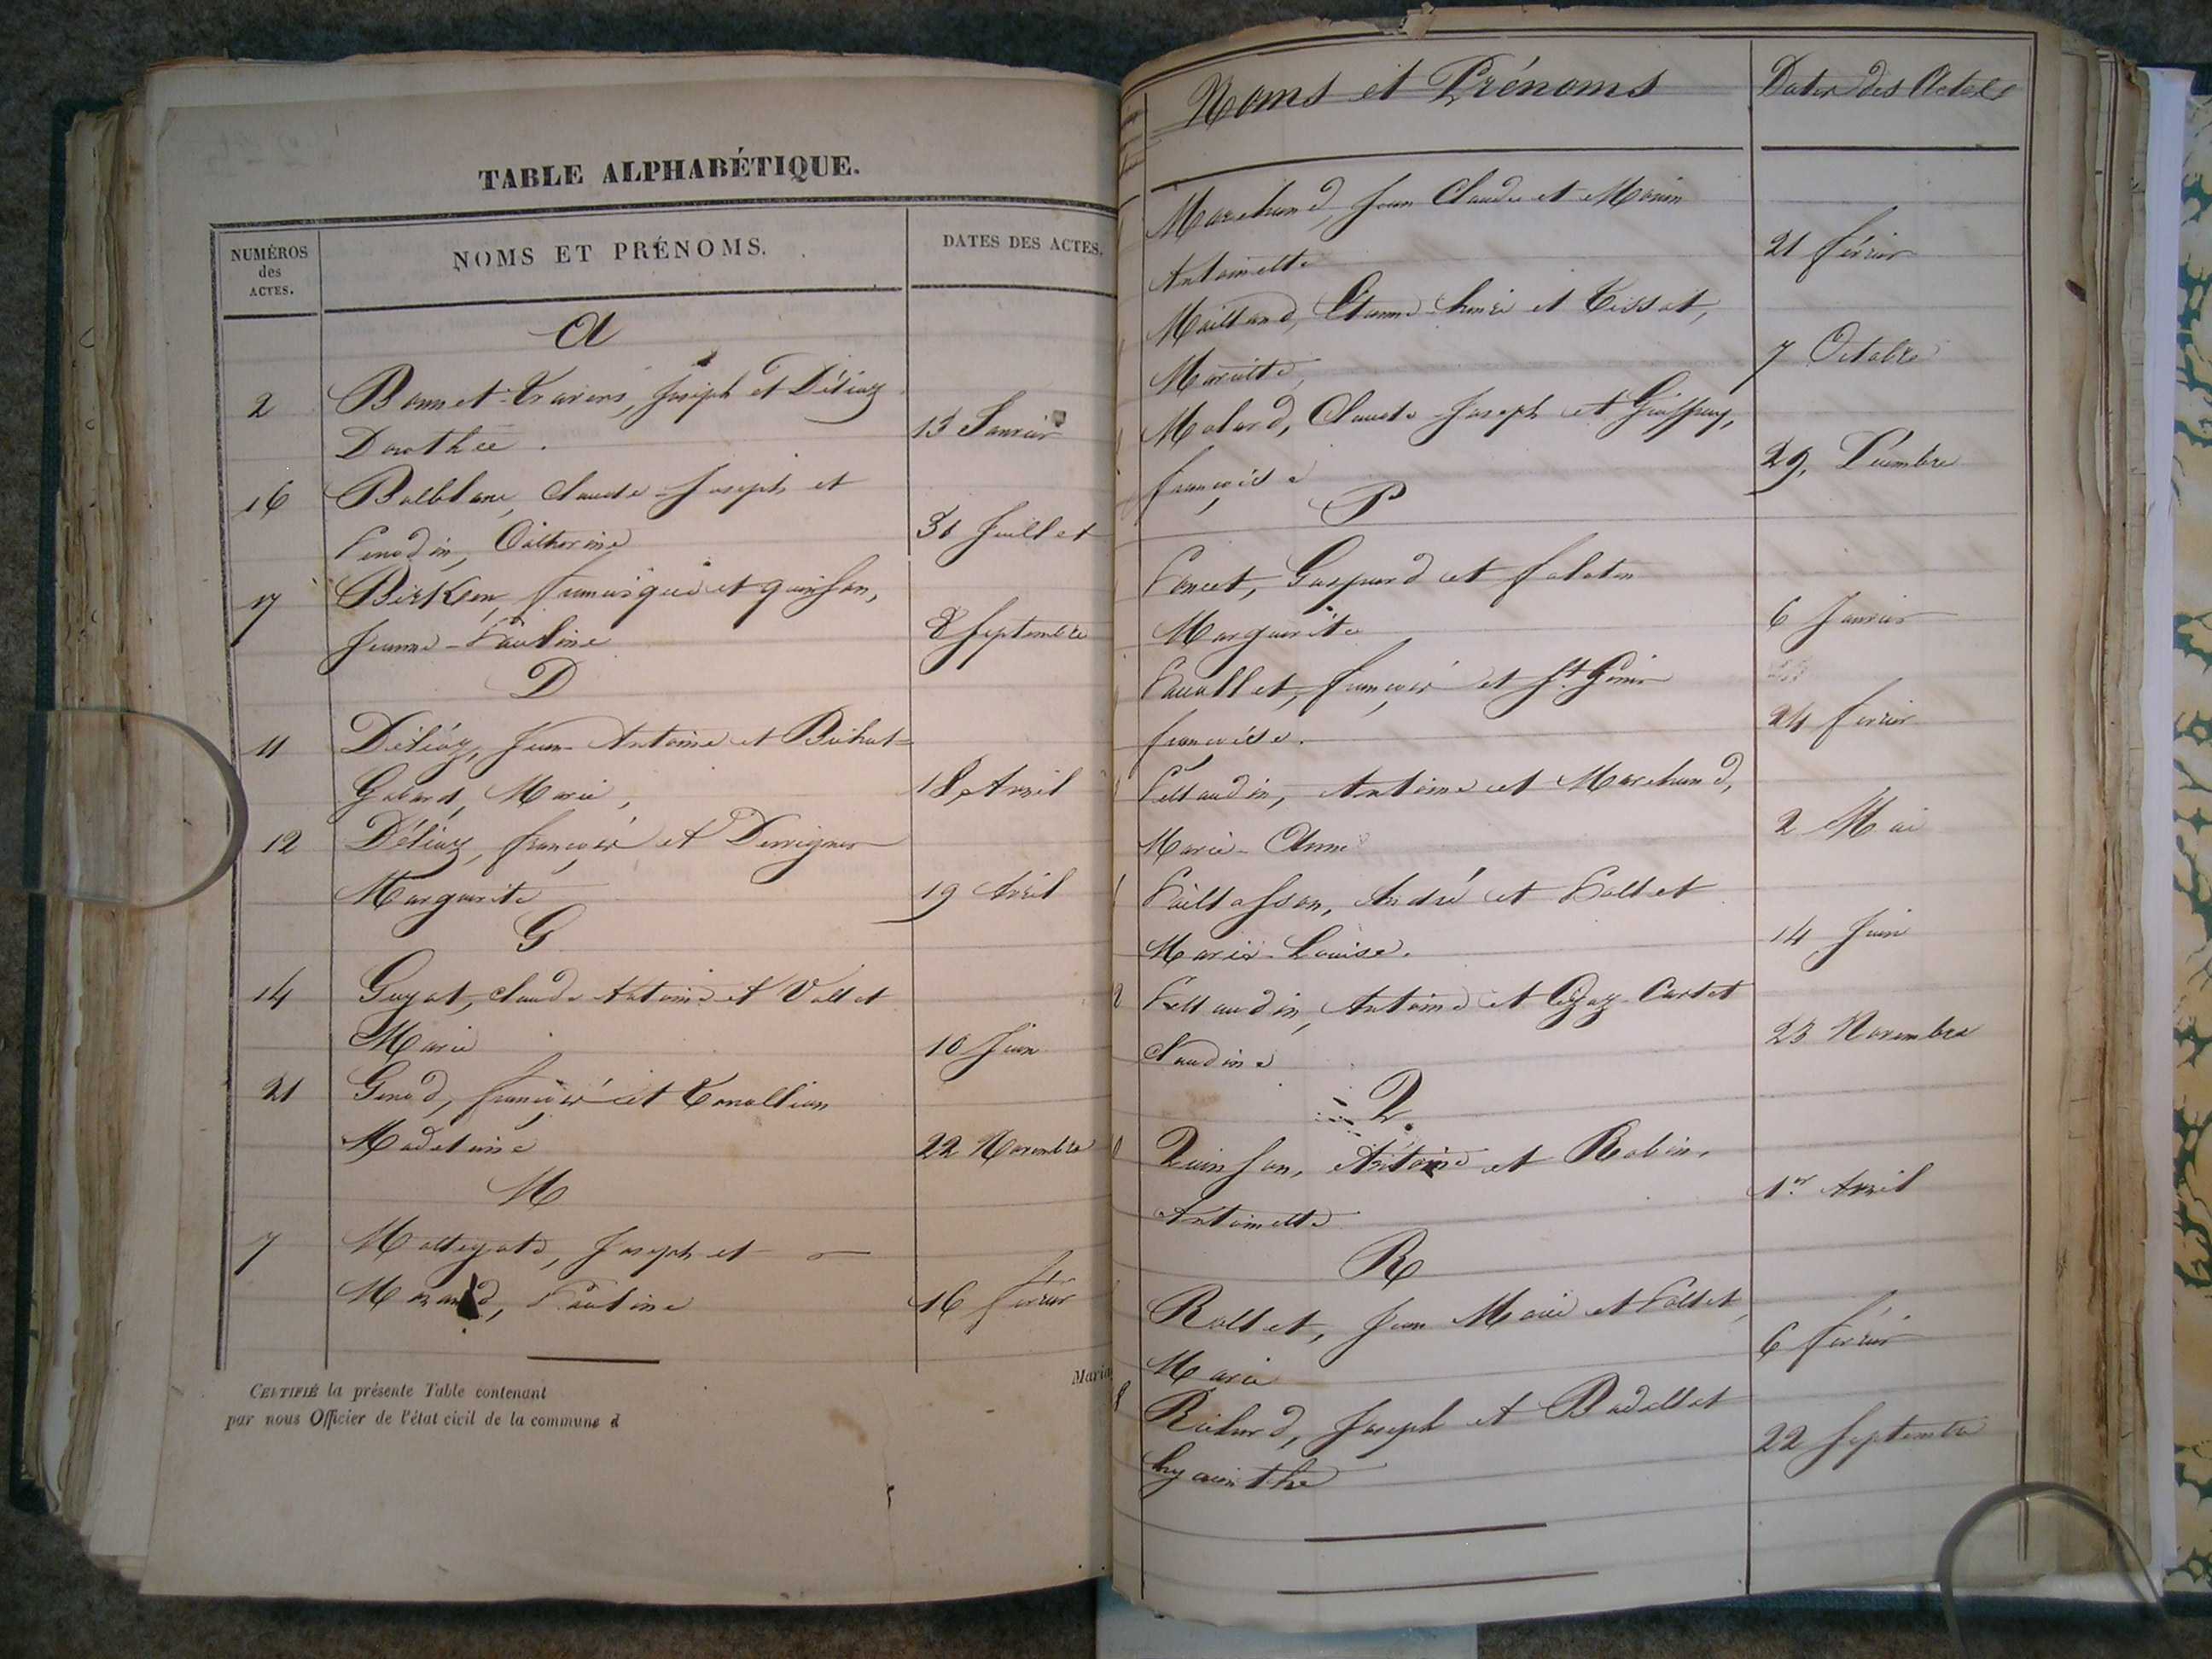 TABLE ALPHABÉTIQUE.
NUMÉROS
des
ACTES.
NOMS ET PRÉNOMS.
DATES DES ACTES.
A
2 Bonnet-Travers, Joseph et Déléaz
Dorothée. 13 Janvier
16 Balblanc, Claude-Joseph et
Catherine 31 Juillet
17 et quinson,
Jeanne-Pauline 8 Septembre
D
11 Déléaz, Jean-Antoine et
Marie, 18 Avril
12 Déléaz, François et
Marguerite 19 Avril
G
14 Guyot, Claude Antoine et Vallet
Marie 10 Juin
21 François et
Madelaine 22 Novembre
M
7 Joseph et
Pauline 16 février
CERTIFIÉ la présente Table contenant
par nous Officier de l'état civil de la commune d
Maria
Noms et Prénoms Dates des Actes
Marchand, Jean Claude et Morin
Antoinette 21 février
Mailland, et Tissot,
Mariette, 7 Octobre
Molard, Claude-Joseph et
françoise 29, Décembre
P
Poncet, Gaspard et
Marguerite 6 Janvier
françois et St. Genis
françoise. 24 février
Pellaudin, Antoine et Marchand,
Marie-Anne 2 Mai
Paillasson, André et Pollet
Marie-Louise. 14 Juin
Pellaudin, Antoine et
Claudine 23 Novembre
Q.
Quinson, Antoine et Robin,
Antoinette 1er Avril
R
Rollet, Jean Marie et Pollet,
Marie 6 février
Richard, Joseph et Badellet
hyacinthe 22 Septembre